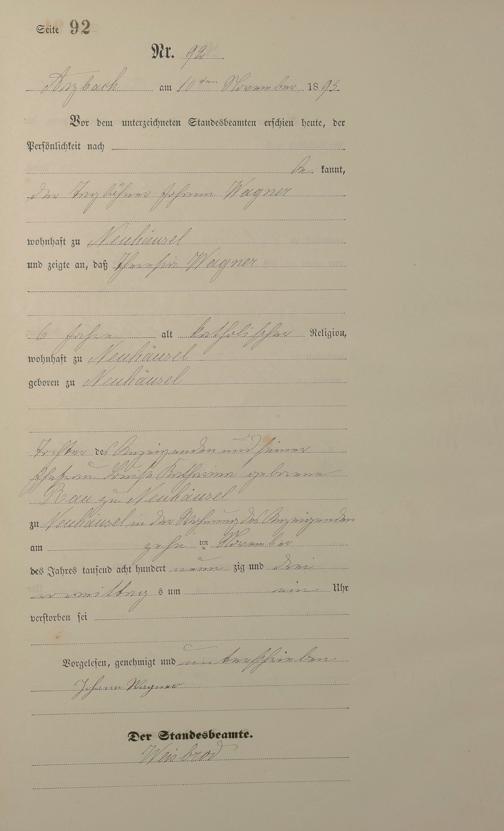 Seite 92
Nr. 92
Arzbach am 10ten November 1893.
Vor dem unterzeichneten Standesbeamten erschien heute, der
Persönlichkeit nach
be kannt,
der Tagelöhner Johann Wagner
wohnhaft zu Neuhäusel
und zeigte an, daß Theresia Wagner
6 Jahre alt katholischer Religion,
wohnhaft zu Neuhäusel
geboren zu Neuhäusel
Tochter des Anzeigenden und seiner
Ehefrau Katharina geborene
Rau zu Neuhäusel
zu Neuhäusel in der Wohnung des Anzeigenden
am zehn ten November
des Jahres tausend acht hundert neun zig und drei
vormittag s um ein Uhr
verstorben sei
Vorgelesen, genehmigt und unterschrieben
Johann Wagner
Der Standesbeamte.
Weisbrod